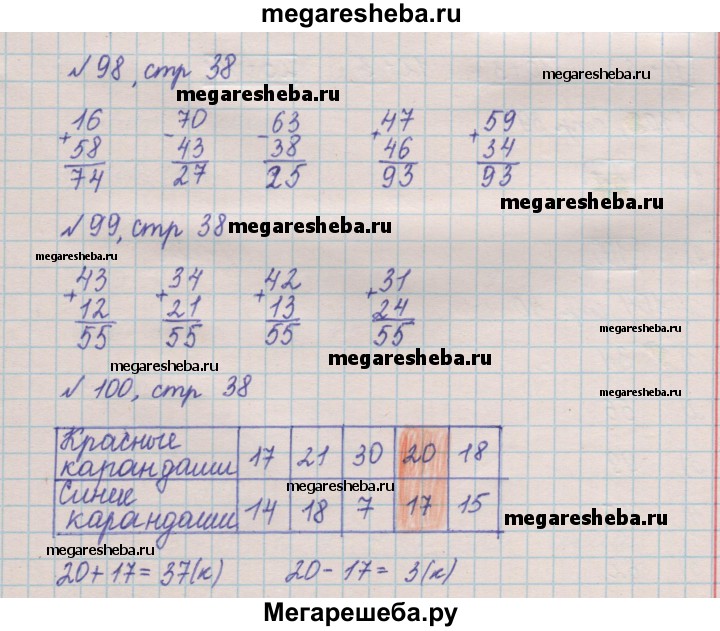 megaresheba.ru
№ 98, стр 38
megaresheba.ru
megaresheba.ru
16 70 63 47 59
+ - - + +
58 43 38 46 34
74 27 25 93 93
megaresheba.ru
№ 99, стр 38
megaresheba.ru
megaresheba.ru
43 34 42 31
+ + + +
12 21 13 24
55 55 55 55
megaresheba.ru
megaresheba.ru
megaresheba.ru
№ 100, стр 38
megaresheba.ru
Красные карандаши 17 21 30 20 18
megaresheba.ru
Синие карандаши 14 18 7 17 15
megaresheba.ru
megaresheba.ru
20+17=37(к) 20-17=3(к)
Мегарешеба.ру